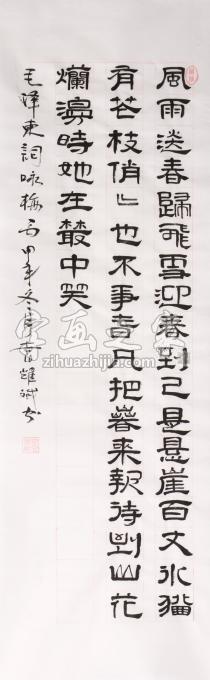 風雨送春歸飛雪迎春到已是悬崖百丈冰猶
有花枝俏也不爭春只把春來報待到山花
爛漫時她在叢中笑
毛泽东詞咏梅 年冬 书
字画之家
zihuazhijia.com